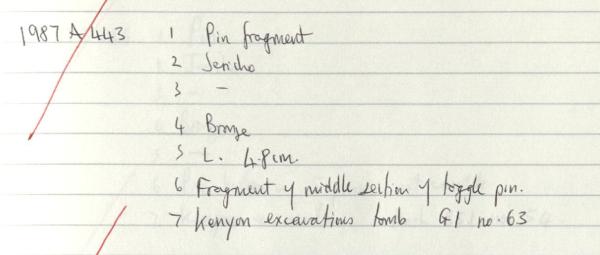 1987 A 443 1 Pin fragment
2 Jericho
3 -
4 Bronze
5 L. 4.8cm.
6 Fragment of middle section of toggle pin.
7 Kenyon excavations tomb G1 no. 63